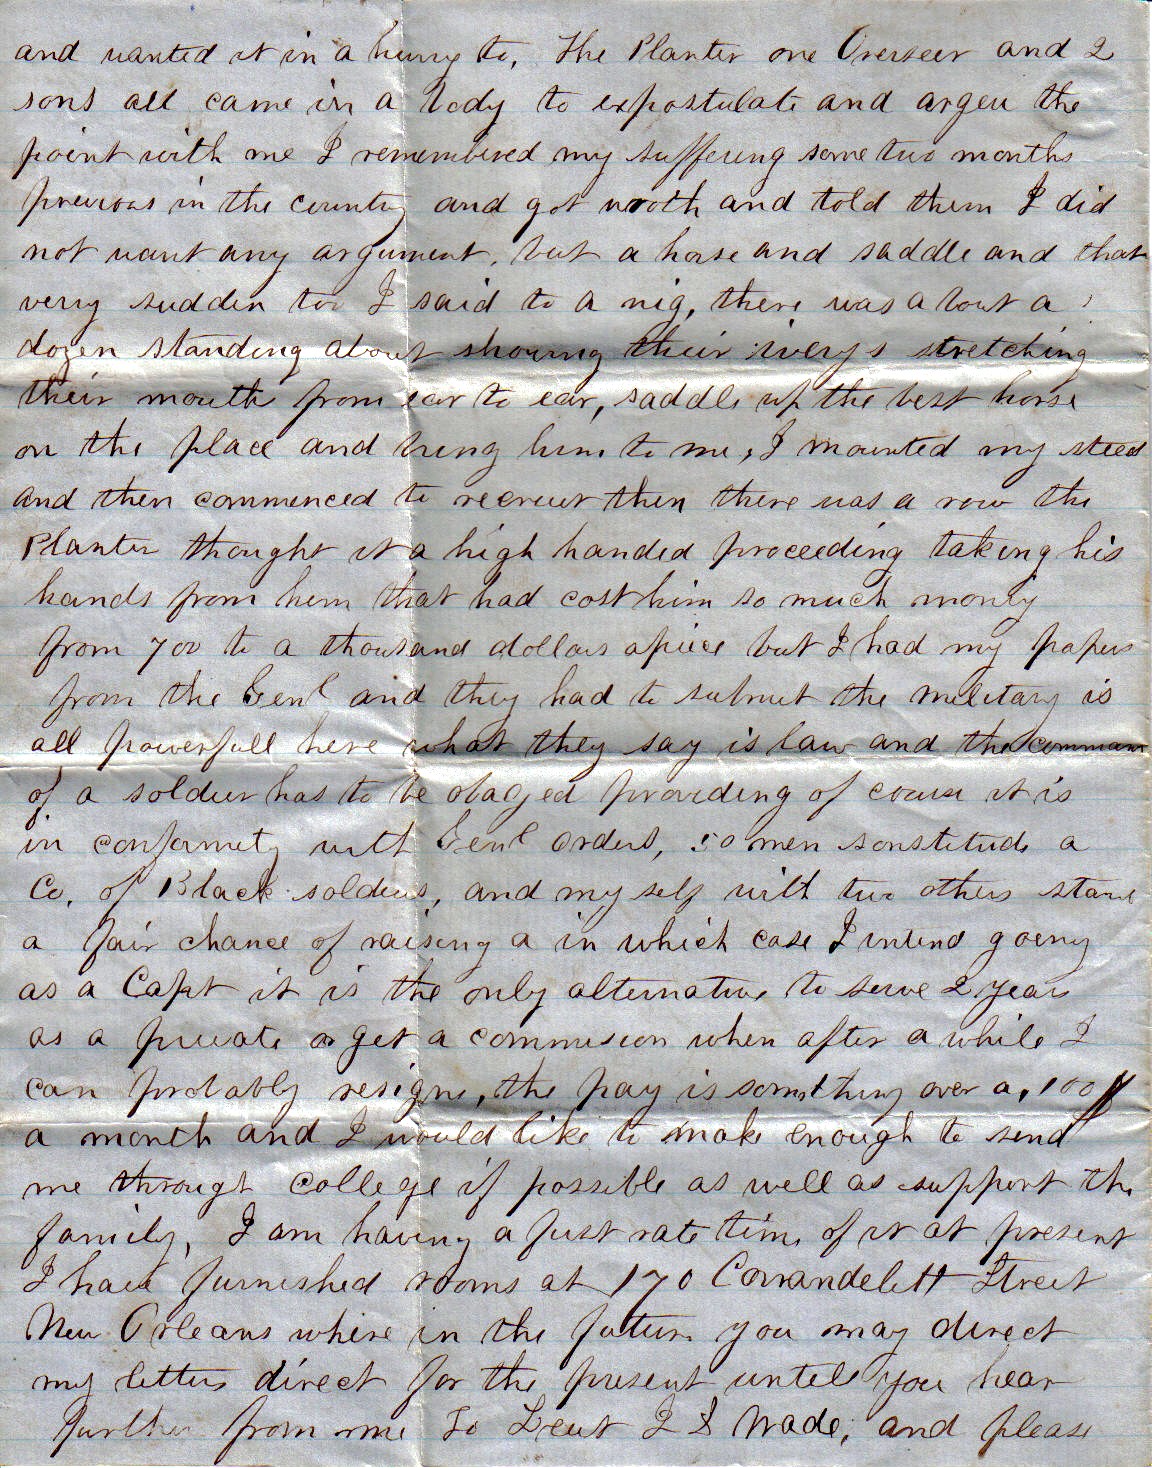 and wanted it in a hurry to, The Planter one Overseer and 2
sons all came in a body to expostulate and argeu the
point with me I remembered my suffering some two months
previous in the country and got wroth and told them I did
not want any argument, but a horse and saddle and that
very sudden too I said to a nig, there was about a
dozen standing about showing their iverys stretching
their mouth from ear to ear, saddle up the best horse
on the place and bring him to me, I mounted my steed
and then commenced to recruit then there was a row the
Planter thought it a high handed proceeding taking his
hands from him that had cost him so much money
from 700 to a thousand dollars apiece but I had my papers
from the Genl and they had to submit the military is
all powerfull here what they say is law and the comman
of a soldier has to be obayed providing of course it is
in conformity with Genl Orders, 50 men sonstitude a
Co, of Black soldiers, and my self with two others stand
a fair chance of raising a in which case I intend goeing
as a Capt it is the only alternative to serve 2 years
as a private or get a commision when after a while I
can probably resigne, the pay is something over a, 100
a month and I would like to make enough to send
me through college if possible as well as support the
family, I am having a fust rate time of it at present
I have furnished rooms at 170 Carrandelett Street
New Orleans where in the future you may direct
my letters direct for the present untill you hear
further from me To Lieut I S Wade, and please